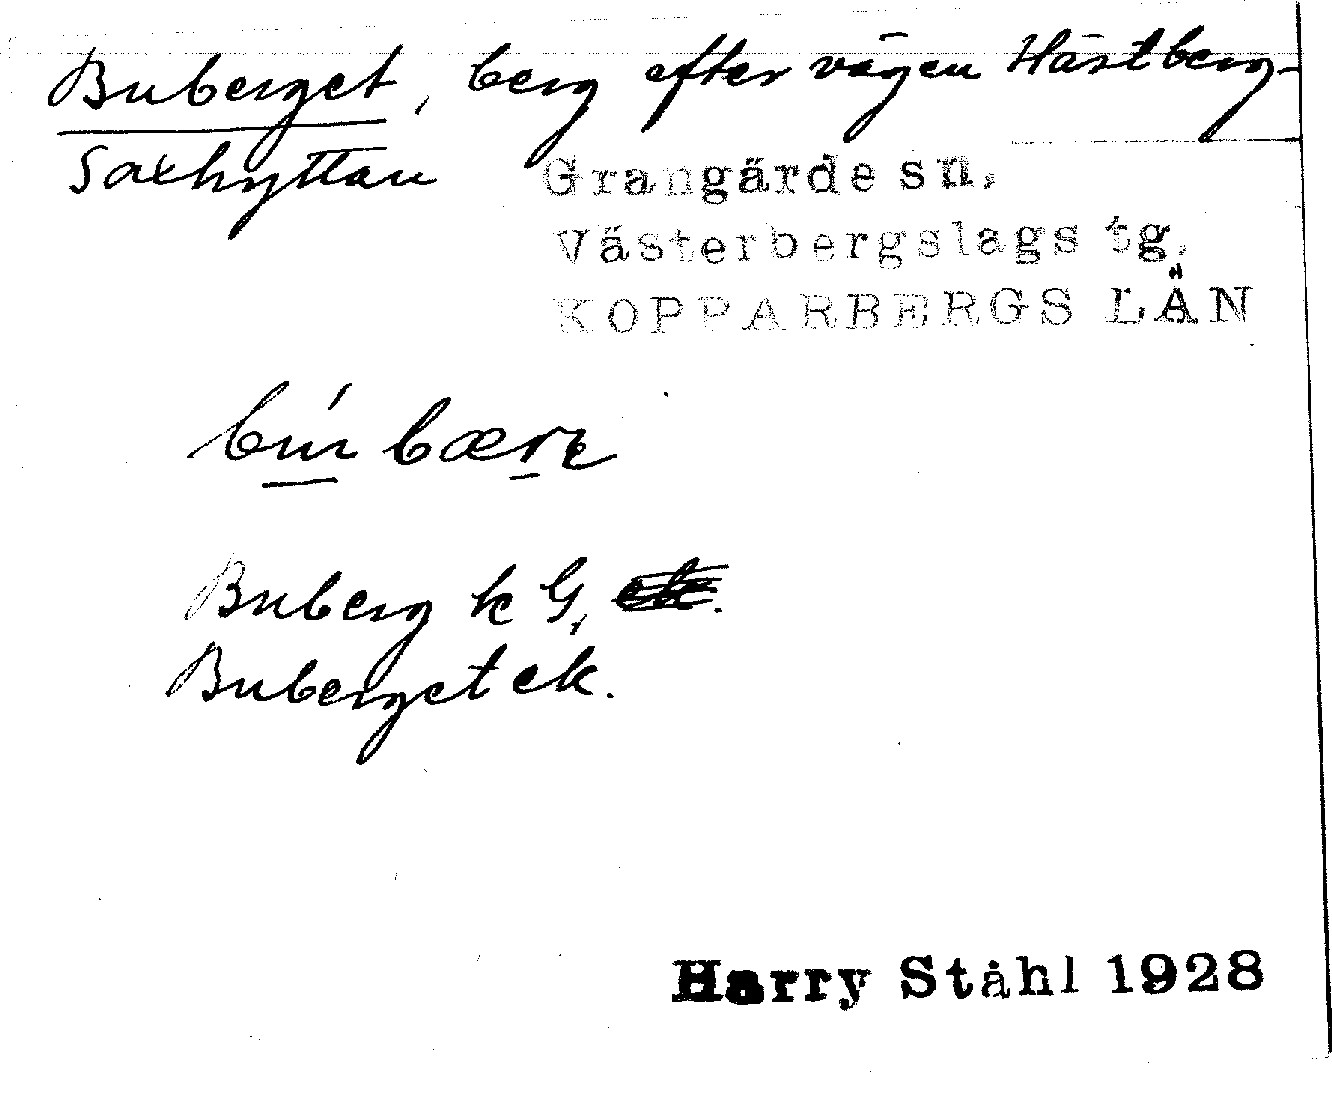 Buberget, berg efter vägen Hästberg-
Saxhyttan
Grangärde sn,
Västerbergslags tg,
KOPPARBERGS LÄN
Buberg k G,
Buberget ek.
Harry Ståhl 1928